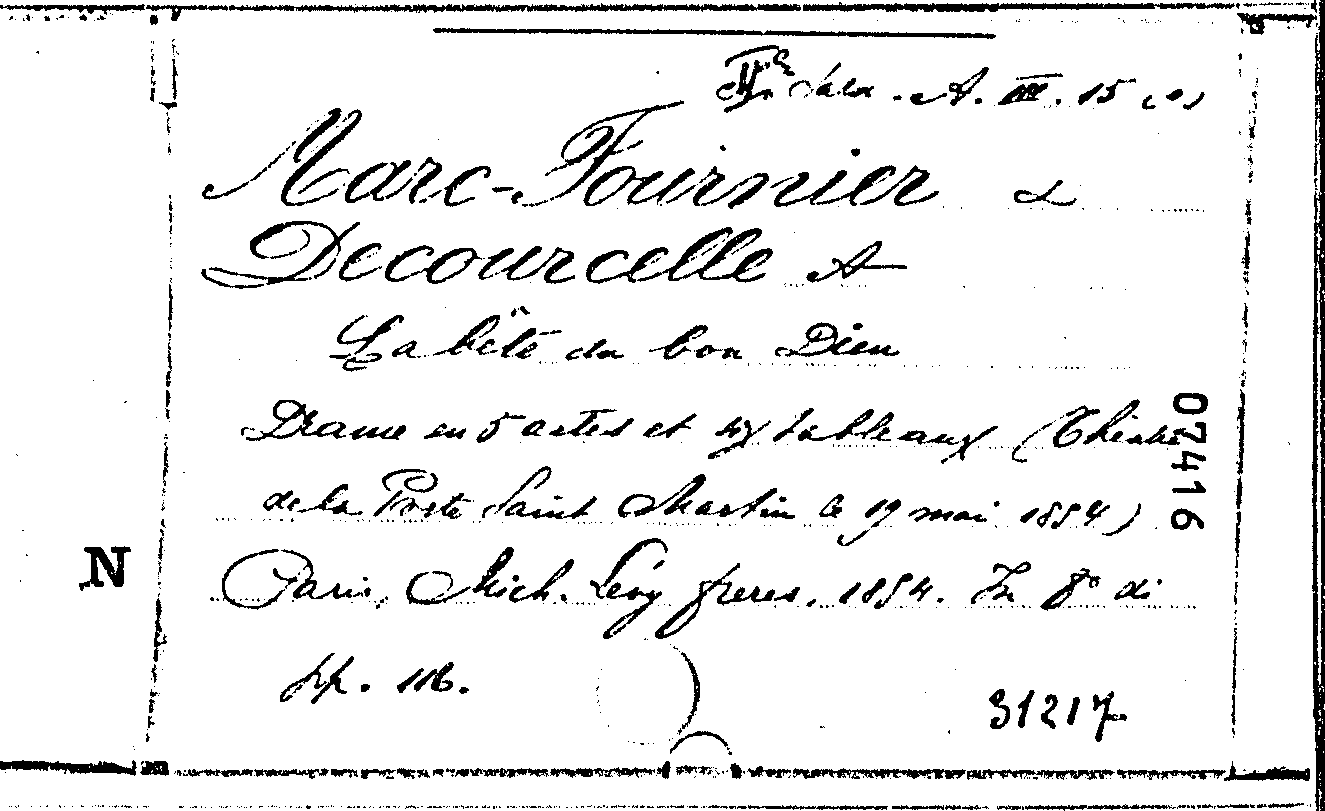 IIa Sala. A. III. 15 (9)
Marc-Fournier &
Decourcelle A
La bête du bon Dieu
Drame en 5 actes et six tableaux (Théatre
de la Porte Saint Martin le 19 mai 1854)
07416
N
Paris, Mich. Lévy freres, 1854. In 8° di
pp. 116.
31217